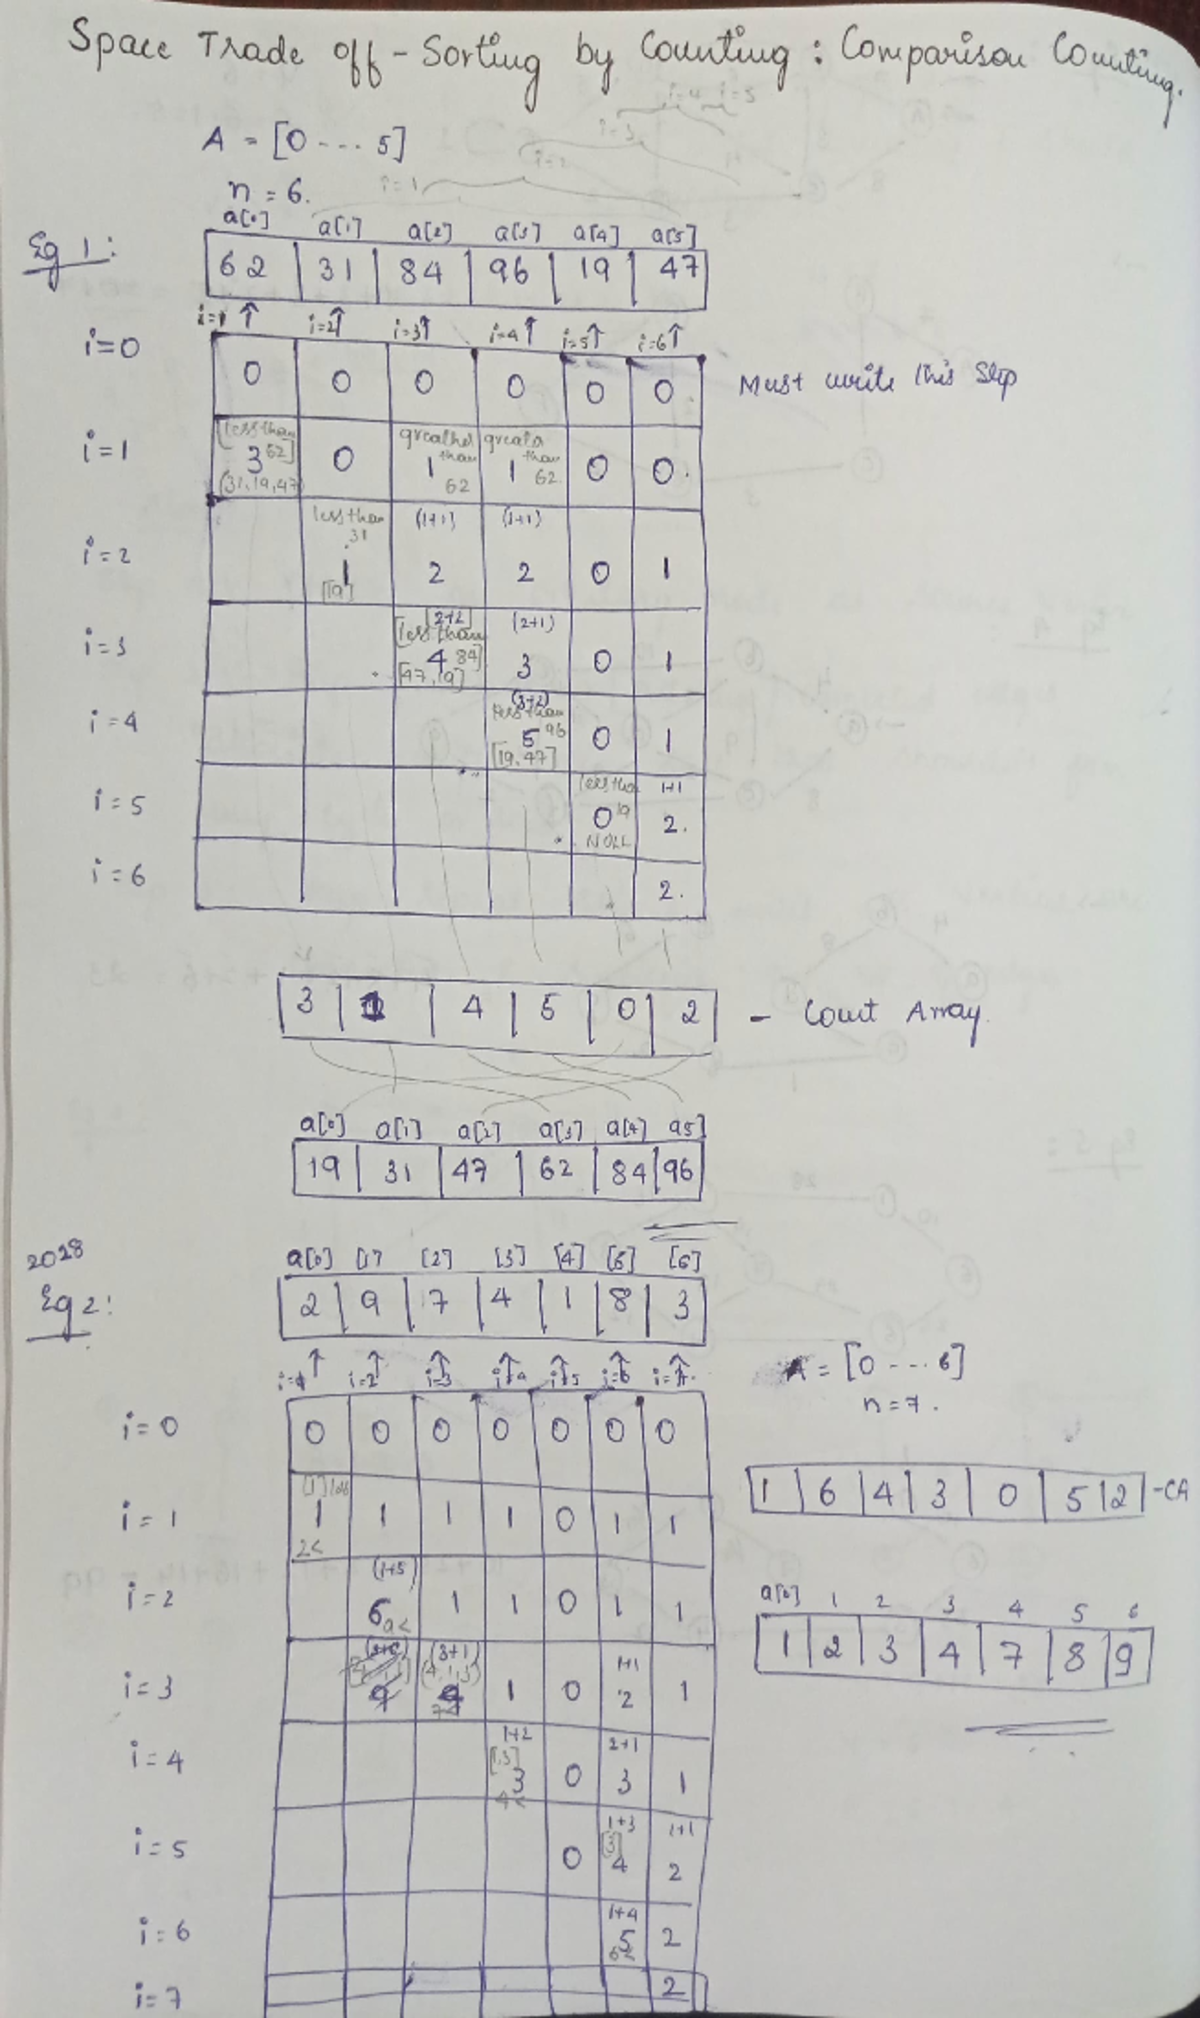 Space Trade off - Sorting by Counting : Comparison Counting.
A = [0 --- 5]
n = 6.
a[0] a[1] a[2] a[3] a[4] a[5]
Eg 1: 62 31 84 96 19 47
i=1 i=2 i=3 i=4 i=5 i=6
i=0 0 0 0 0 0 0 Must write this Step
[less than greather greata
i=1 3 62] 0 1 than 1 than 0 0.
(31,19,47) 62 62
less than (1+1) (1+1)
31
i=2 1 2 2 0 1
[19]
[2+2] (2+1)
i=3 [less than
4 84] 3 0 1
[47,19]
(3+2)
i=4 less than
5 96 0 1
[19,47]
less tha 1+1
i=5 0 19 2.
NULL
i=6 2.
3 1 4 5 0 2 - Count Array.
a[0] a[1] a[2] a[3] a[4] a5]
19 31 47 62 84 96
2018
a[0] [1] [2] [3] [4] [5] [6]
Eg 2: 2 9 7 4 1 8 3
i=1 i=2 i=3 i=4 i=5 i=6 i=7
A = [0 --- 6]
n=7.
i=0 0 0 0 0 0 0 0
1 6 4 3 0 5 2 -CA
i=1 1 1 1 1 0 1 1
2<
(1+5)
i=2 6 1 1 0 1 1
9<
a[0] 1 2 3 4 5 6
1 2 3 4 7 8 9
(3+1) 1+1
(4,1,3)
i=3 4 1 0 2 1
7<
1+2 2+1
[1,3]
i=4 3 0 3 1
4<
1+3 1+1
[3]
i=5 0 4 2
1+4
i=6 5 2
i=7 2